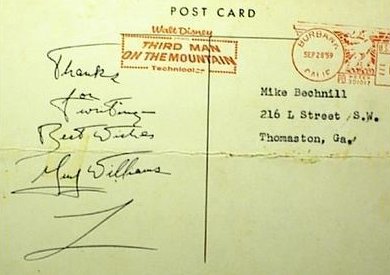 POST CARD
Walt Disney
THIRD MAN
ON THE MOUNTAIN
Technicolor
BURBANK
SEP 28 '59
CALIF.
Mike Bechnill
216 L Street S.W.
Thomaston, Ga.
Thanks
for
writing
Best Wishes
Guy Williams
Z